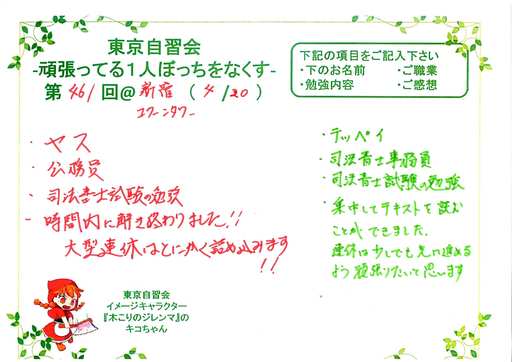 東京自習会
-頑張ってる1人ぼっちをなくす-
第461回@新宿(4/20)
エクーンタワー
下記の項目をご記入下さい
・下のお名前 ・ご職業
・勉強内容 ・ご感想
・ヤス
・公務員
・司法書士試験の勉強
・時間内に解き終わりました!!
大型連休はとにかく詰め込みます!!
・テッペイ
・司法書士事務員
・司法書士試験の勉強
・集中してテキストを読む
ことができました。
連休は少しでも先に進める
よう頑張りたいと思います
東京自習会
イメージキャラクター
『木こりのジレンマ』の
キコちゃん